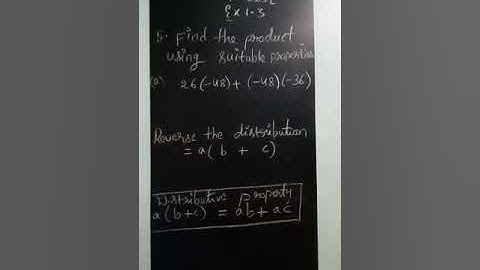 Ex 1.3
5. Find the product
using suitable properties
(a) 26(-48) + (-48)(-36)
Reverse the distribution
= a( b + c)
Distributive Property
a (b+c) = ab + ac